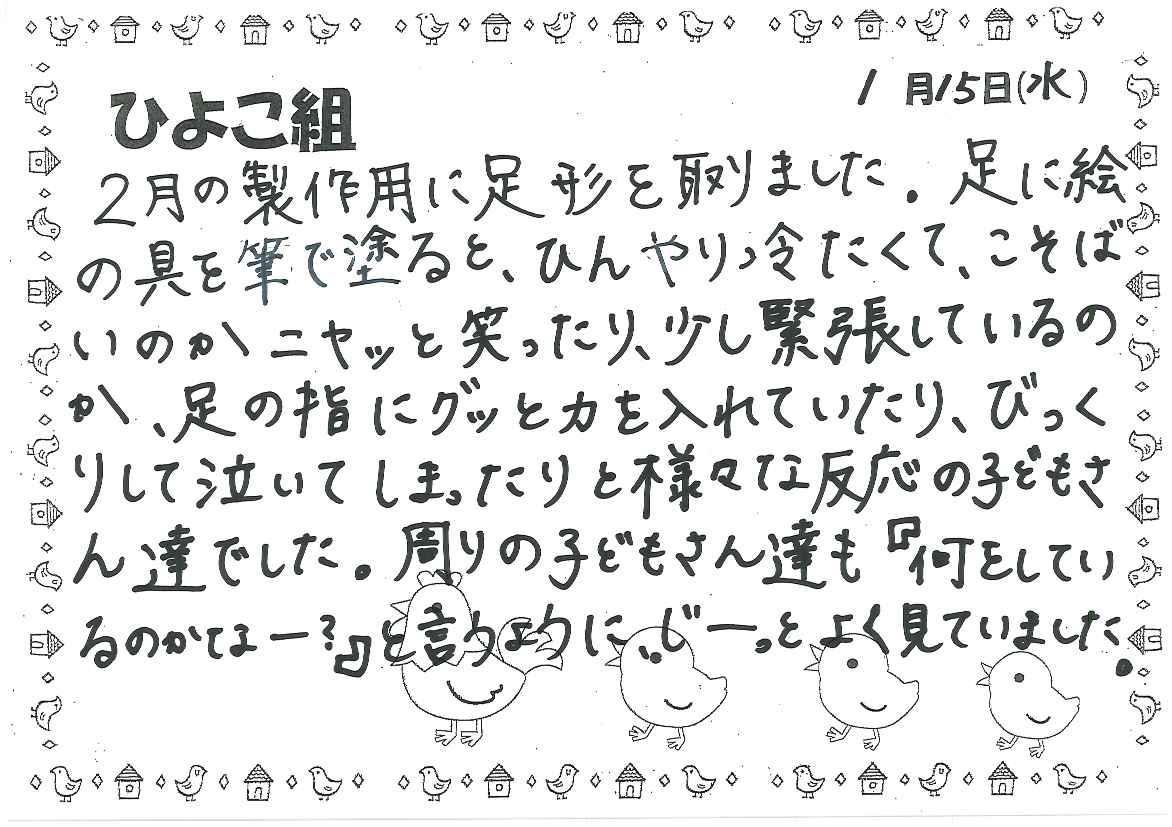 1月15日(水)
ひよこ組
2月の製作用に足形を取りました。足に絵
の具を筆で塗ると、ひんやりっ冷たくて、こそば
いのかニヤッと笑ったり、少し緊張しているの
か、足の指にグッと力を入れていたり、びっく
りして泣いてしまったりと様々な反応の子どもさ
ん達でした。周りの子どもさん達も『何をしてい
るのかなー?』と言うように、じーっとよく見ていました。